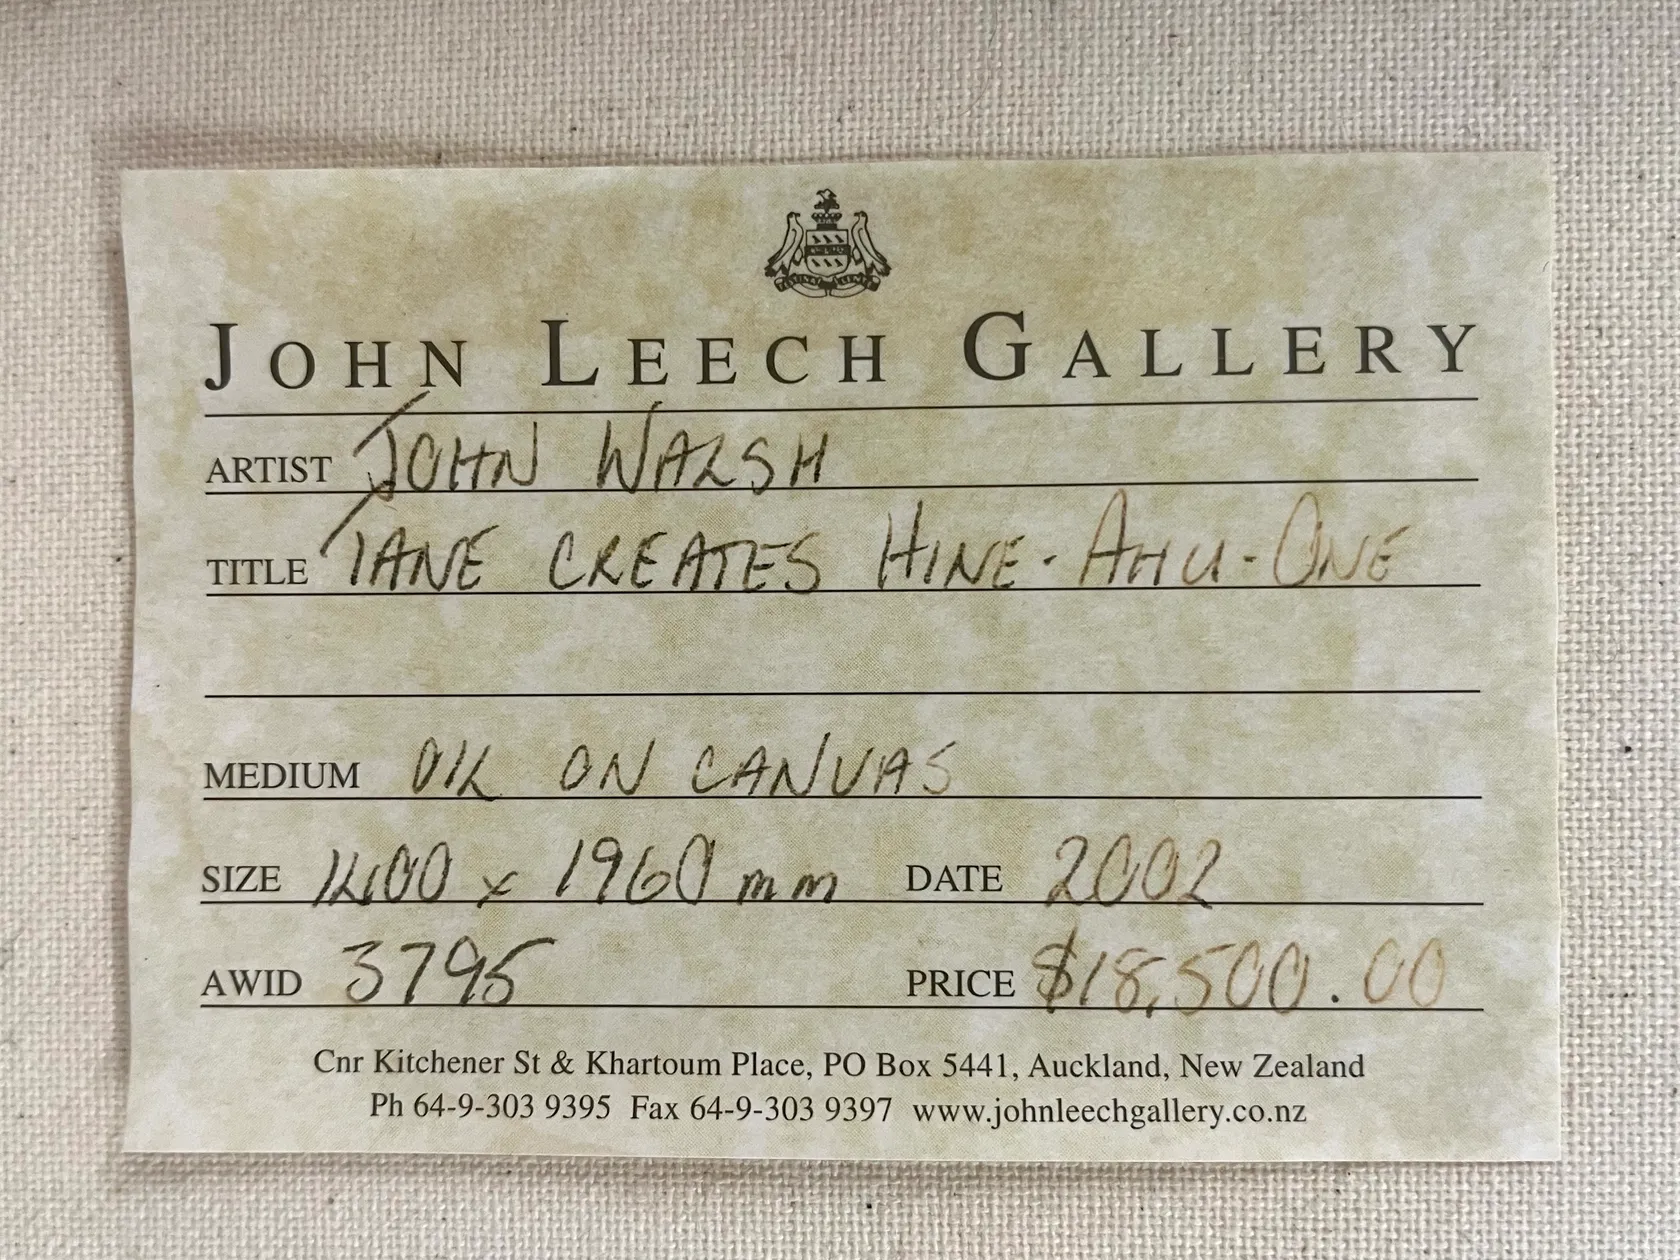 JOHN LEECH GALLERY
ARTIST JOHN WALSH
TITLE TANE CREATES HINE-AHU-ONE
MEDIUM OIL ON CANVAS
SIZE 1400 x 1960 mm DATE 2002
AWID 3795 PRICE $18,500.00
Cnr Kitchener St & Khartoum Place, PO Box 5441, Auckland, New Zealand
Ph 64-9-303 9395 Fax 64-9-303 9397 www.johnleechgallery.co.nz